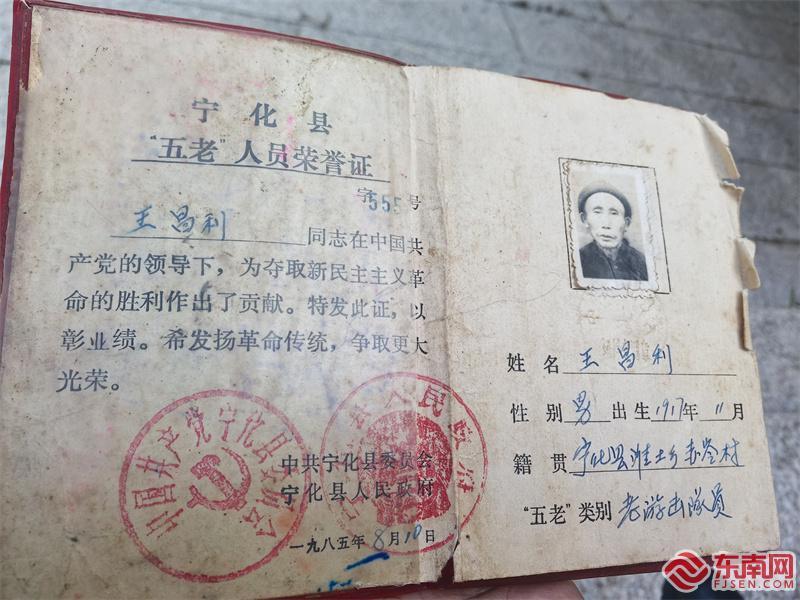 宁化县
“五老”人员荣誉证
字555号
王昌利同志在中国共
产党的领导下，为夺取新民主主义革
命的胜利作出了贡献。特发此证，以
彰业绩。希发扬革命传统，争取更大
光荣。
中国共产党宁化县委员会
中共宁化县委员会
宁化县人民政府
一九八五年8月10日
姓名王昌利
性别男出生1917年11月
籍贯宁化县淮土乡赤岭村
“五老”类别老游击队员
东南网
FJSEN.COM